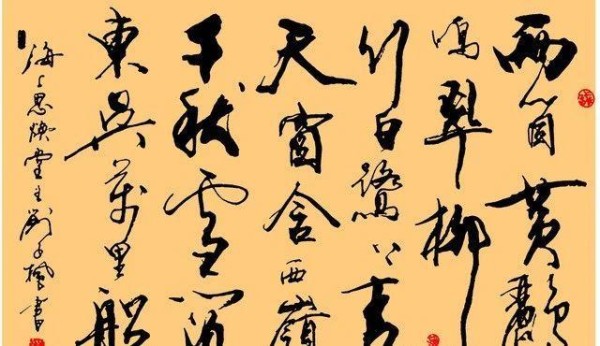 兩箇黃鸝
鳴翠柳
行白鷺上青
天窗含西嶺
千秋雪門
東吳萬里船
海上思煥堂主劉子楓書